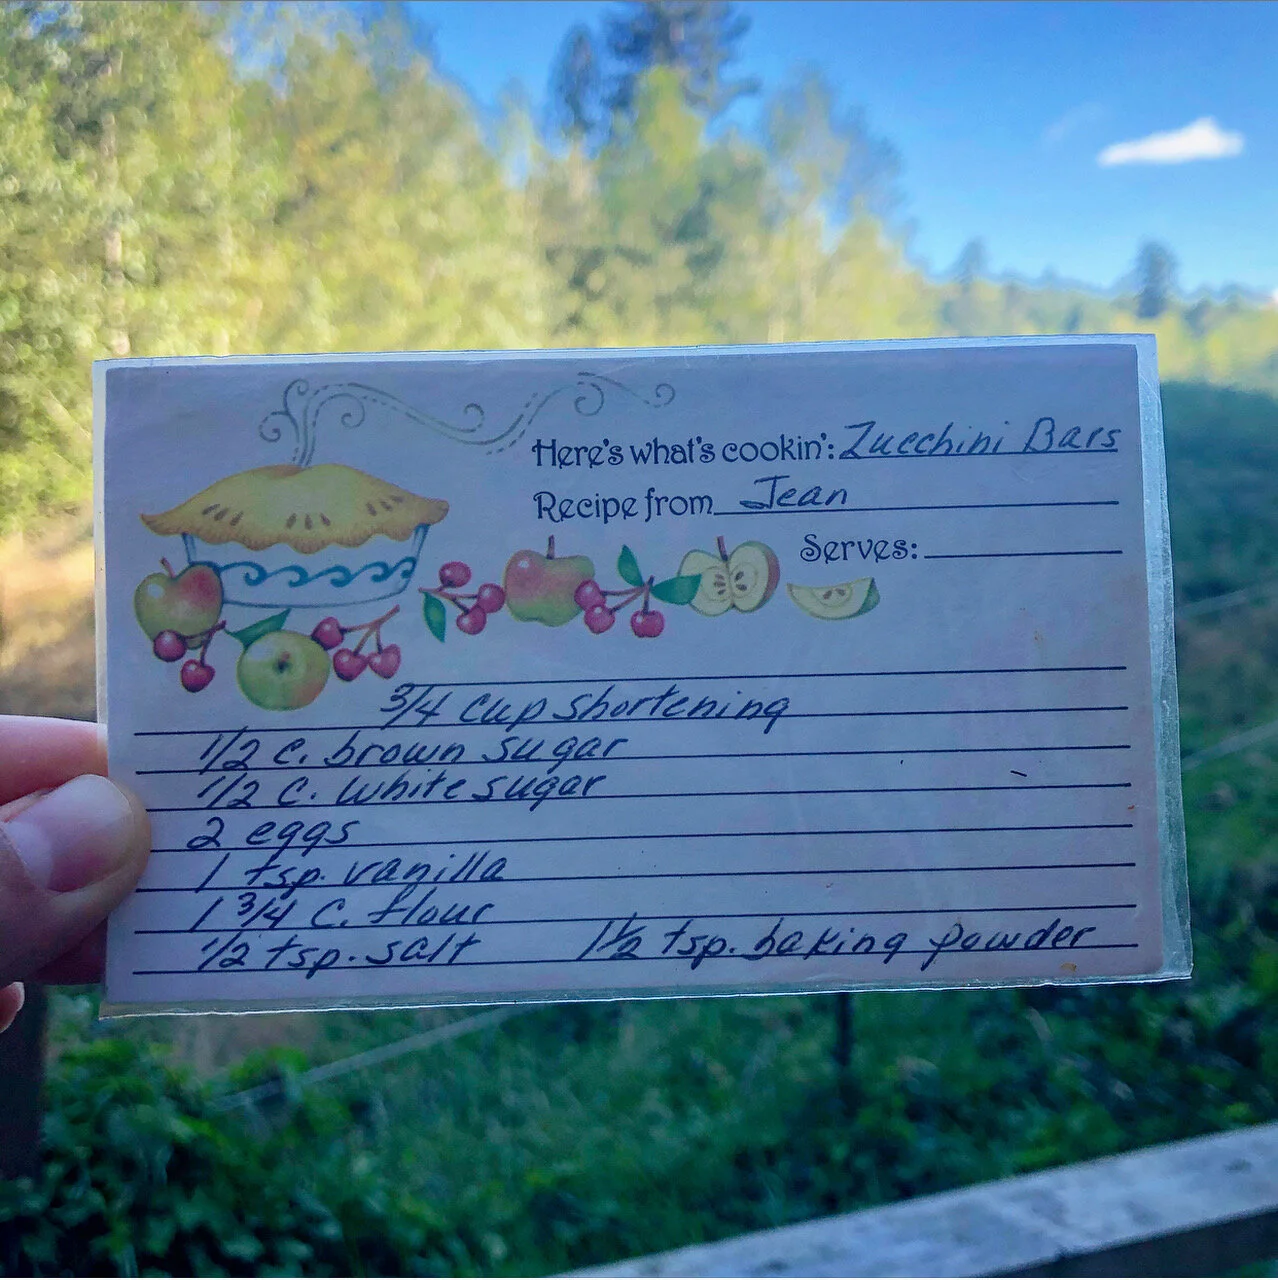 Here's what's cookin': Zucchini Bars
Recipe from Jean
Serves:
3/4 cup shortening
1/2 c. brown sugar
1/2 c. white sugar
2 eggs
1 tsp. vanilla
1 3/4 c. flour
1/2 tsp. salt 1 1/2 tsp. baking powder